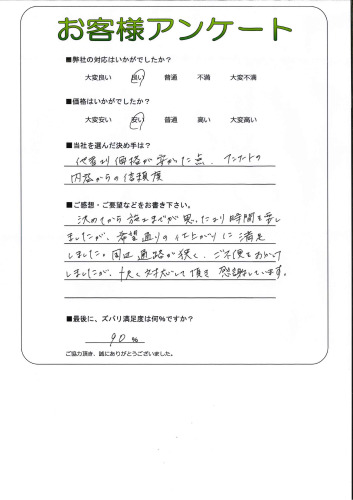 お客様アンケート
■弊社の対応はいかがでしたか?
大変良い 良い 普通 不満 大変不満
■価格はいかがでしたか?
大変安い 安い 普通 高い 大変高い
■当社を選んだ決め手は?
他者より価格が安かった点、アンケートの
内容からの信頼度
■ご感想・ご要望などをお書き下さい。
決めてから施工までが思ったより時間を要し
ましたが、希望通りの仕上がりに満足
しました。周辺通路が狭く、ご不便をおかけ
しましたが、快く対応して頂き感謝しています。
■最後に、ズバリ満足度は何%ですか?
90 %
ご協力頂き、誠にありがとうございました。